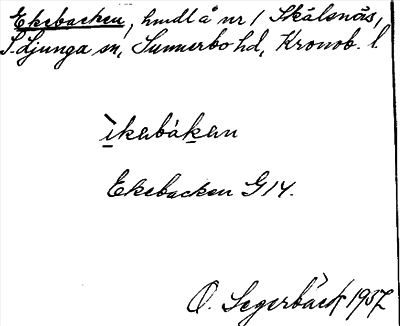 Ekebacken, hmdl å nr 1 Skålsnäs,
S. Ljunga sn, Sunnerbo hd, Kronob. l.
ìkabákan
Ekebacken G 14.
O. Segerbäck 1937